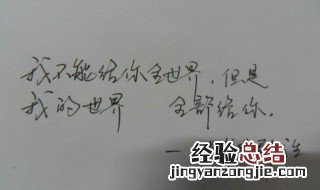 我不能给你全世界，但是
我的世界 全部给你。
经验总结
www.jingyanzongjie.com